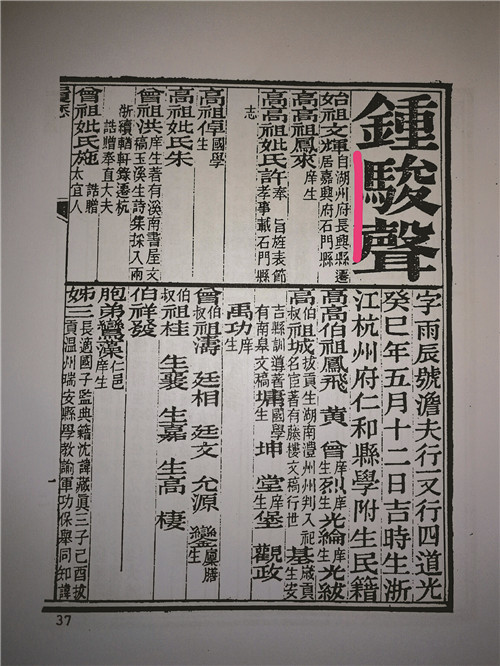 鍾駿聲
字雨辰號澹夫行一又行四道光
癸巳年五月十二日吉時生浙
江杭州府仁和縣學附生民籍
始祖文輝自湖州府長興縣遷
居嘉興府石門縣
高高祖鳳來庠生
高高祖妣氏許奉旨旌表節
孝事載石門縣
志
高祖倬國學
生
高祖妣氏朱
曾祖洪庠生著有溪南書屋文
稿玉溪生詩集採入兩
浙輶軒錄遷杭
誥贈奉直大夫
曾祖妣氏施誥贈
太宜人
高高伯祖鳳飛 黃 曾庠生 烈庠生 光綸庠生 光紱
高叔伯祖城拔貢生湖南澧州州判入祀
名宦著有藤樓文稿行世 基歲貢生安
吉縣訓導著
有南臯文稿 墉國學生 坤 堂庠生 堡 觀政
禹功庠
生
曾叔伯祖濤 廷相 廷文 允源 鑾廩膳
生
叔伯祖桂 生襄 生嘉 生高 棲
伯祥發
胞弟鸞藻仁邑
庠生
姊三長適國子監典籍沈諱藏真三子己酉拔
貢溫州瑞安縣學教諭軍功保舉同知諱
37